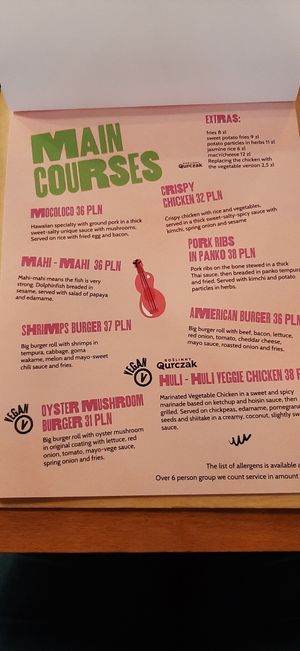 MAIN
COURSES
EXTRAS:
fries 8 zl
sweet potato fries 9 zl
potato particles in herbs 11 zl
jasmine rice 6 zl
mac'n'cheese 12 zl
Replacing the chicken with
the vegetable version 2,5 zl
ROŚLINNY
Qurczak
MOCOLOCO 36 PLN
Hawaiian specialty with ground pork in a thick
sweet-salty unique sauce with mushrooms.
Served on rice with fried egg and bacon.
CRISPY
CHICKEN 32 PLN
Crispy chicken with rice and vegetables,
served in a thick sweet-salty-spicy sauce with
kimchi, spring onion and sesame
MAHI - MAHI 36 PLN
Mahi-mahi means the fish is very
strong. Dolphinfish breaded in
sesame, served with salad of papaya
and edamame.
PORK RIBS
IN PANKO 38 PLN
Pork ribs on the bone stewed in a thick
Thai sauce, then breaded in panko tempura
and fried. Served with kimchi and potato
particles in herbs.
SHRIMPS BURGER 37 PLN
Big burger roll with shrimps in
tempura, cabbage, goma
wakame, melon and mayo-sweet
chili sauce and fries.
AMERICAN BURGER 36 PLN
Big burger roll with beef, bacon, lettuce,
red onion, tomato, cheddar cheese,
mayo sauce, roasted onion and fries.
VEGAN
V
ROŚLINNY
Qurczak
HULI - HULI VEGGIE CHICKEN 38 P
Marinated Vegetable Chicken in a sweet and spicy
marinade based on ketchup and hoisin sauce, then
grilled. Served on chickpeas, edamame, pomegrana
seeds and shiitake in a creamy, coconut, slightly sw
sauce.
VEGAN
V
OYSTER MUSHROOM
BURGER 31 PLN
Big burger roll with oyster mushroom
in original coating with lettuce, red
onion, tomato, mayo-vege sauce,
spring onion and fries.
The list of allergens is available a
Over 6 person group we count service in amount